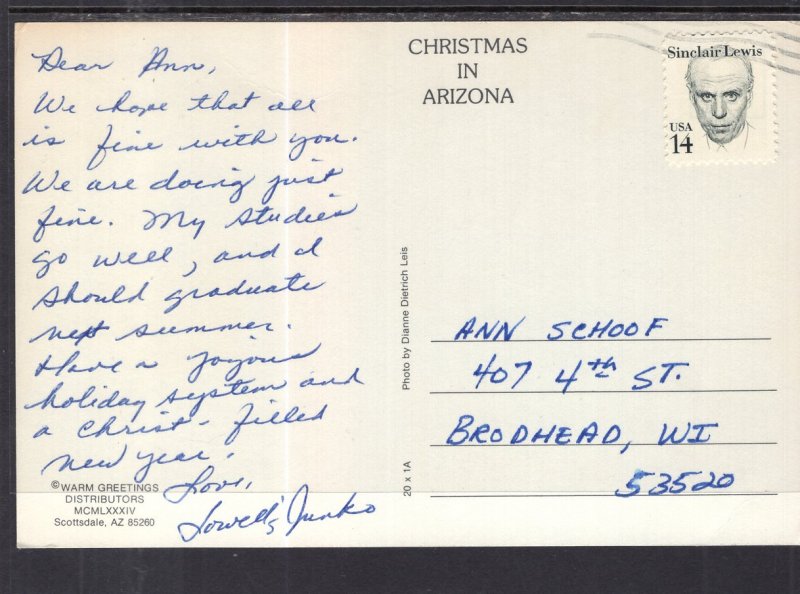 Dear Ann,
We hope that all
is fine with you.
We are doing just
fine. My studies
go well, and I
should graduate
next summer.
Have a joyous
holiday system and
a Christ-filled
new year.
Love,
Lowell & Junko
©WARM GREETINGS
DISTRIBUTORS
MCMLXXXIV
Scottsdale, AZ 85260
CHRISTMAS
IN
ARIZONA
Photo by Dianne Dietrich Leis
20 x 1A
Sinclair Lewis
USA
14
ANN SCHOOF
407 4th ST.
BRODHEAD, WI
53520